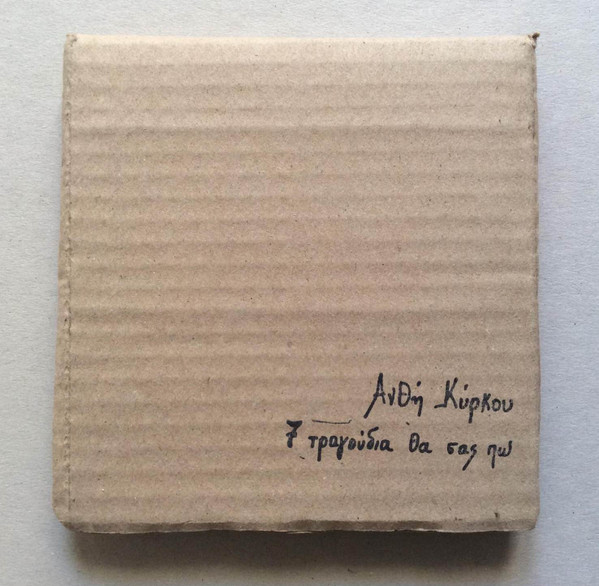 Ανθή Κύρκου
7 τραγούδια θα σας πω